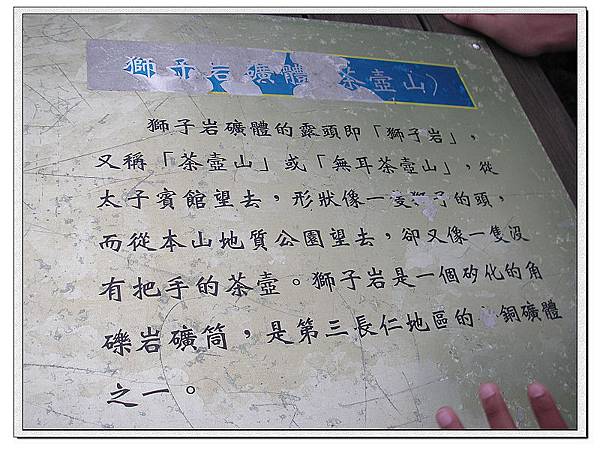 獅子岩礦體 茶壺山)
獅子岩礦體的露頭即「獅子岩」,
又稱「茶壺山」或「無耳茶壺山」,從
太子賓館望去,形狀像一隻獅子的頭,
而從本山地質公園望去,卻又像一隻沒
有把手的茶壺。獅子岩是一個矽化的角
礫岩礦筒,是第三長仁地區的 銅礦體
之一。